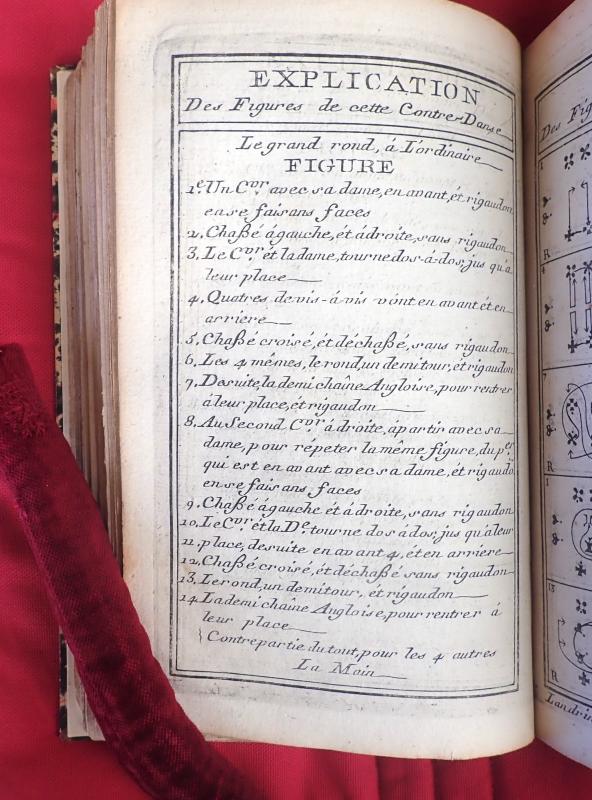 EXPLICATION
Des Figures de cette Contre-Danse
Le grand rond, á L'ordinaire
FIGURE
1.e Un C.vr avec sa dame, en avant, ét rigaudon
en se faisans faces
2. Chaßé ágauche, ét ádroite, sans rigaudon
3. Le C.vr ét la dame, tourne dos-á-dos, jus qu'á
leur place
4. Quatres de vis-á-vis vont en avant ét en
arriere
5. Chaßé croisé, ét déchaßé, sans rigaudon
6. Les 4 mêmes, le rond, un demi tour, ét rigaudon
7. De suite, la demi chaîne Angloise, pour rentrer
á leur place, ét rigaudon
8. Au Second C.vr á droite, ápartir avec sa
dame, pour répeter la même figure, du p.er
qui est en avant avec sa dame, ét rigaudo
en se faisans faces
9. Chaßé ágauche ét á droite, sans rigaudon
10. Le C.vr ét la D.e tourne dos á dos, jus qu'á leur
11. place, de suite en avant 4, et en arriere
12. Chaßé croisé, ét déchaßé sans rigaudon
13. Le rond, un demi tour, ét rigaudon
14. La demi chaîne Angloise, pour rentrer á
leur place
Contre partie du tout, pour les 4 autres
La Main
Des Fig
1
4
7
1
13
R
R
Landrin